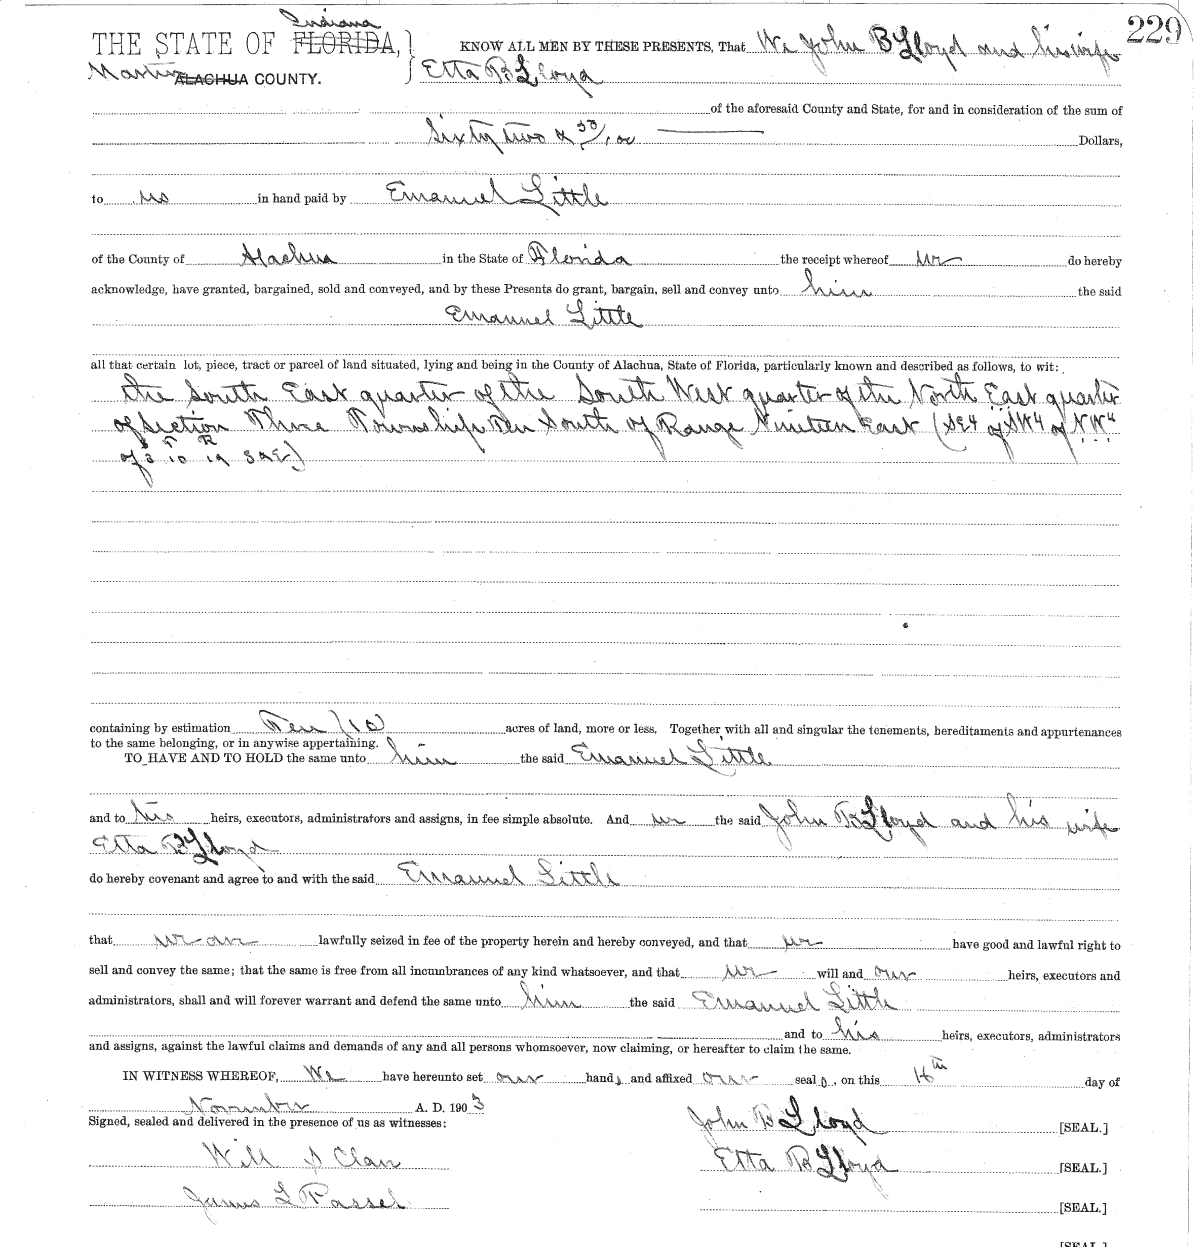 229
Indiana
THE STATE OF FLORIDA, KNOW ALL MEN BY THESE PRESENTS, That We John B Lloyd and his wife
ALACHUA COUNTY. Etta B Lloyd
of the aforesaid County and State, for and in consideration of the sum of
Sixty two & 50/100 Dollars,
to us in hand paid by Emanuel Little
of the County of Alachua in the State of Florida the receipt whereof we do hereby
acknowledge, have granted, bargained, sold and conveyed, and by these Presents do grant, bargain, sell and convey unto him the said
Emanuel Little
all that certain lot, piece, tract or parcel of land situated, lying and being in the County of Alachua, State of Florida, particularly known and described as follows, to wit:
the South East quarter of the South West quarter of the North East quarter
of section Three Township Ten South of Range Nineteen East (SE4 of SW4 of N W4
of 3 T 10 R 19 S & E)
containing by estimation Ten (10) acres of land, more or less. Together with all and singular the tenements, hereditaments and appurtenances
to the same belonging, or in anywise appertaining.
TO HAVE AND TO HOLD the same unto him the said Emanuel Little
and to his heirs, executors, administrators and assigns, in fee simple absolute. And we the said John B Lloyd and his wife
Etta B Lloyd
do hereby covenant and agree to and with the said Emanuel Little
that we are lawfully seized in fee of the property herein and hereby conveyed, and that we have good and lawful right to
sell and convey the same; that the same is free from all incumbrances of any kind whatsoever, and that we will and our heirs, executors and
administrators, shall and will forever warrant and defend the same unto him the said Emanuel Little
and to his heirs, executors, administrators
and assigns, against the lawful claims and demands of any and all persons whomsoever, now claiming, or hereafter to claim the same.
IN WITNESS WHEREOF, We have hereunto set our hands and affixed our seals, on this 16th day of
November A. D. 1903
Signed, sealed and delivered in the presence of us as witnesses: John B Lloyd [SEAL.]
Will S Clan Etta B Lloyd [SEAL.]
James L Passel [SEAL.]
[SEAL.]